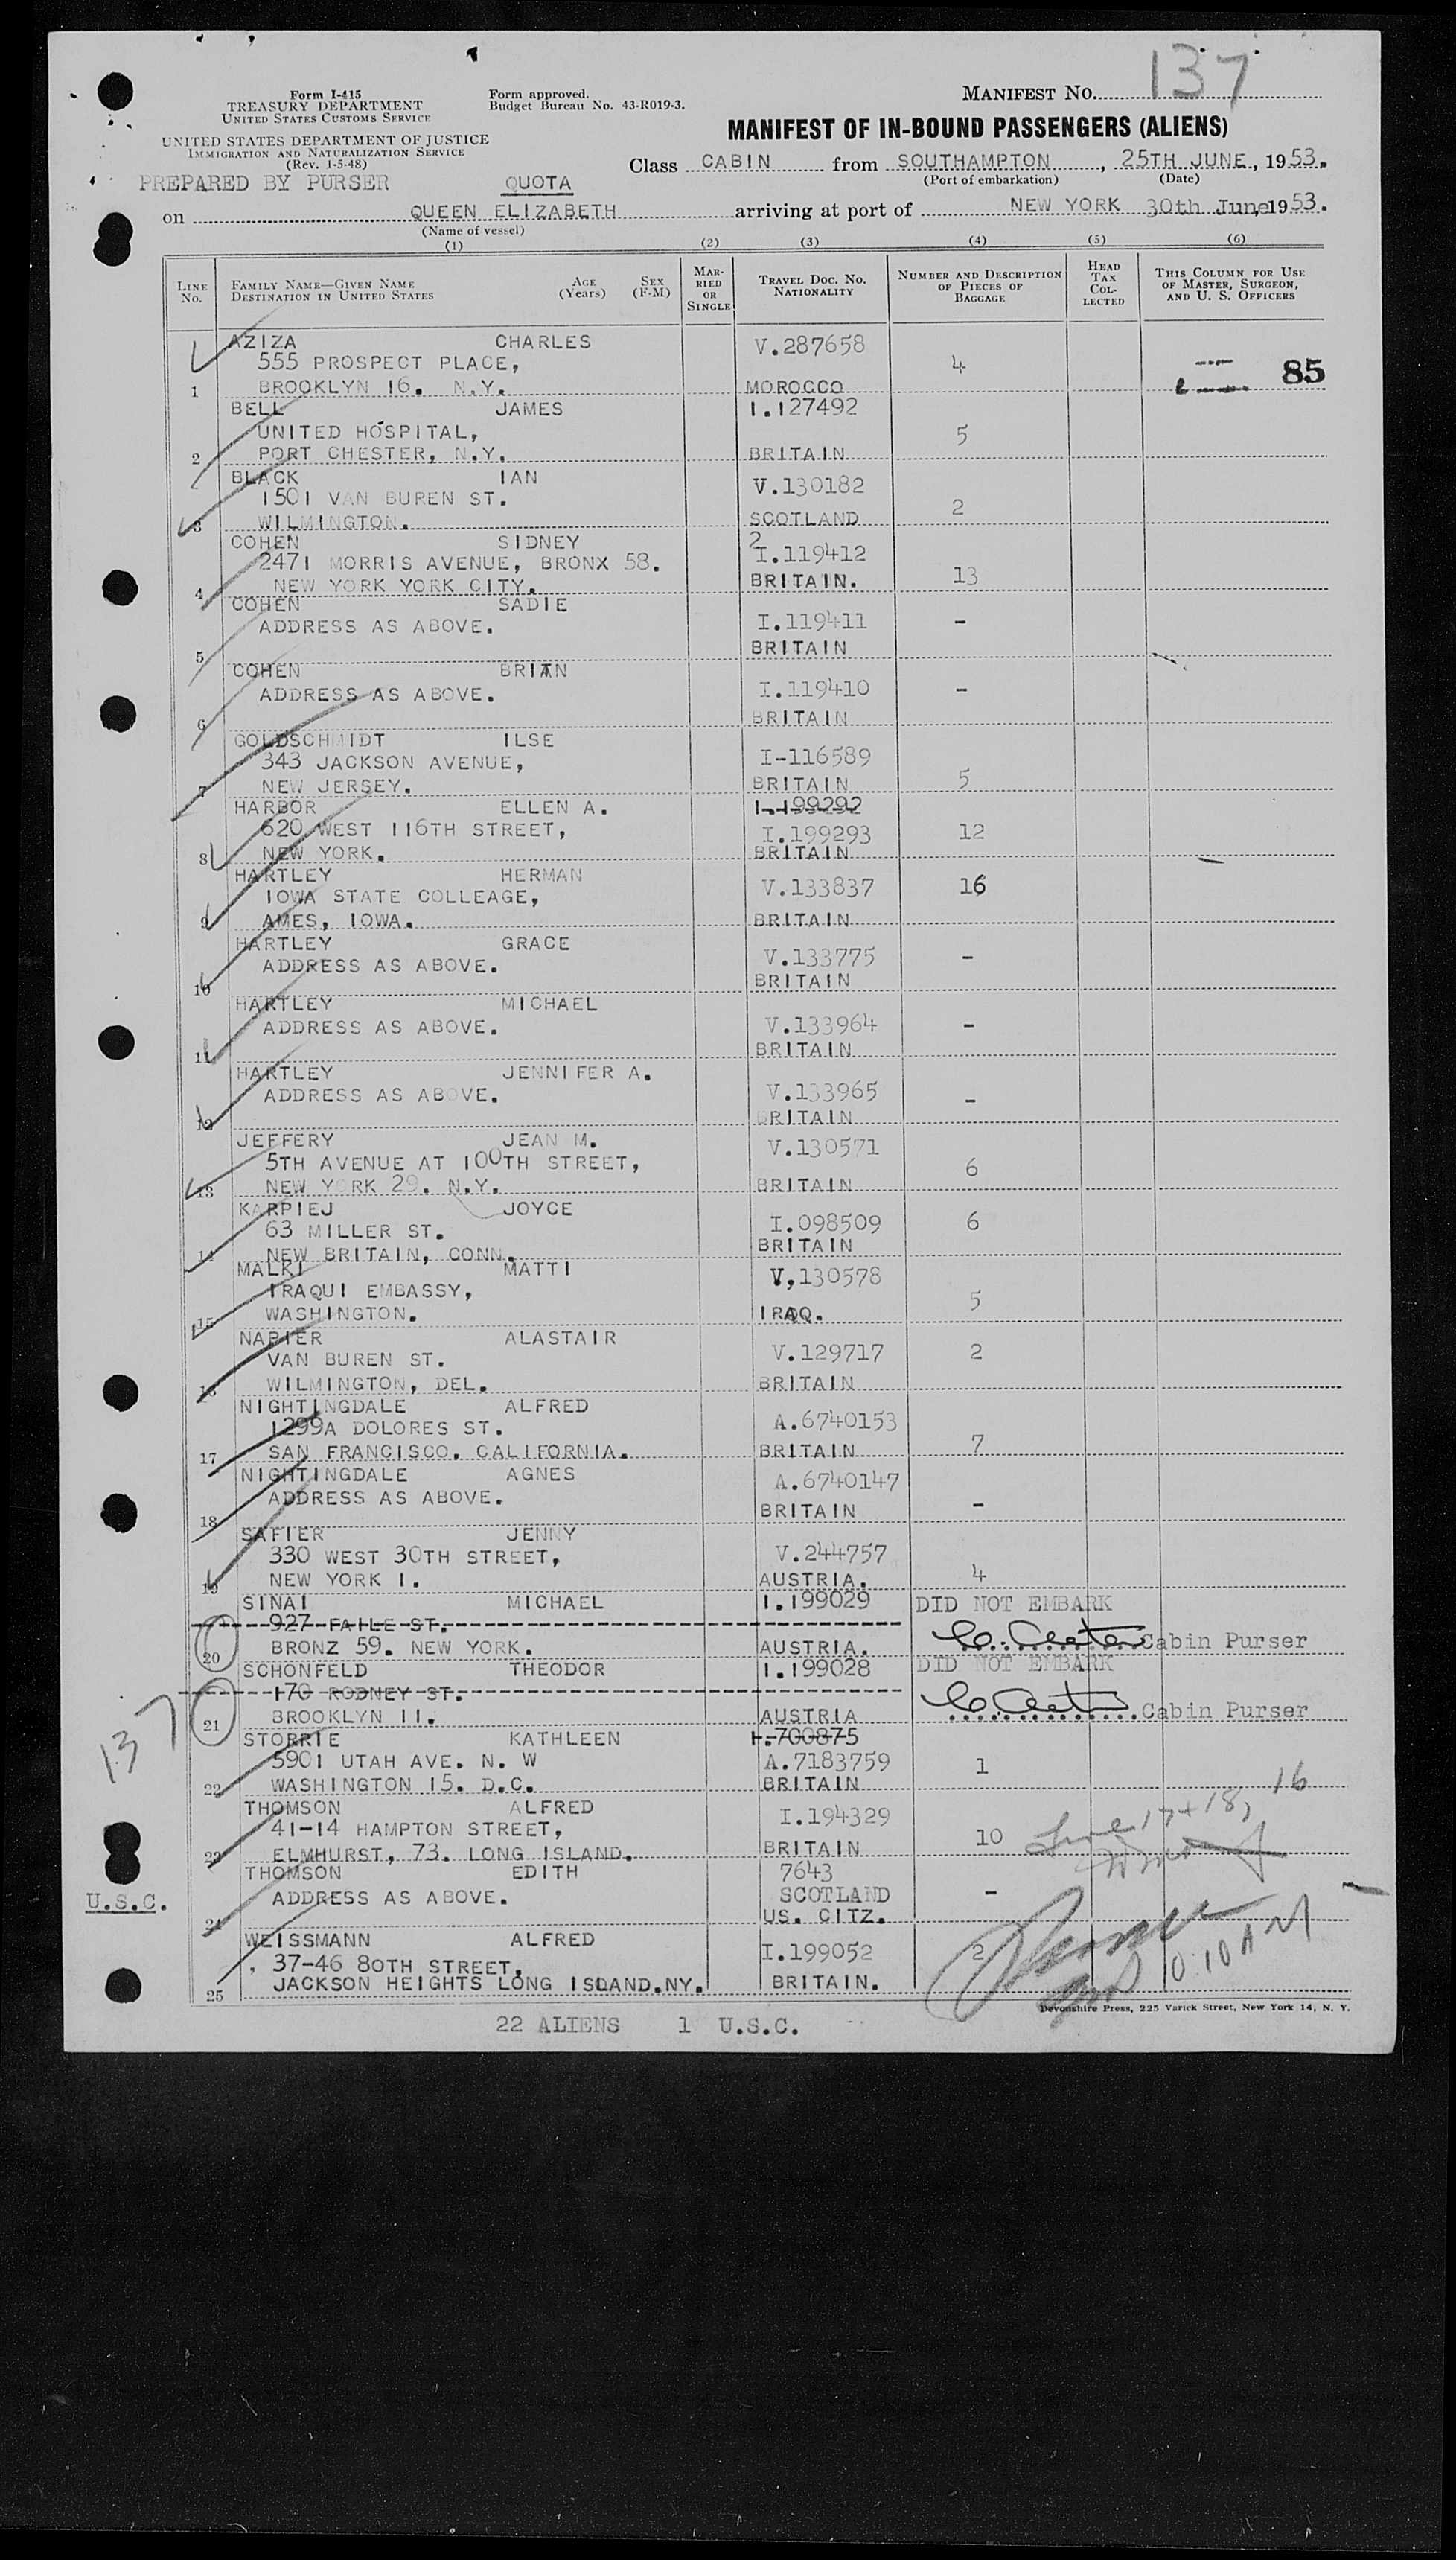 137
Form I-415
TREASURY DEPARTMENT
UNITED STATES CUSTOMS SERVICE
UNITED STATES DEPARTMENT OF JUSTICE
IMMIGRATION AND NATURALIZATION SERVICE
(Rev. 1-5-48)
Form approved.
Budget Bureau No. 43-R019-3.
MANIFEST NO.
MANIFEST OF IN-BOUND PASSENGERS (ALIENS)
Class CABIN from SOUTHAMPTON, 25TH JUNE, 1953.
(Port of embarkation) (Date)
PREPARED BY PURSER QUOTA
on QUEEN ELIZABETH arriving at port of NEW YORK 30th June, 1953.
(Name of vessel)
(1) (2) (3) (4) (5) (6)
LINE NO. FAMILY NAME—GIVEN NAME DESTINATION IN UNITED STATES AGE (Years) SEX (F-M) MARRIED OR SINGLE TRAVEL DOC. NO. NATIONALITY NUMBER AND DESCRIPTION OF PIECES OF BAGGAGE HEAD TAX COLLECTED THIS COLUMN FOR USE OF MASTER, SURGEON, AND U. S. OFFICERS
AZIZA CHARLES V.287658
555 PROSPECT PLACE, 4 85
1 BROOKLYN 16. N.Y. MOROCCO
BELL JAMES I.127492
UNITED HOSPITAL, 5
2 PORT CHESTER, N.Y. BRITAIN
BLACK IAN V.130182
1501 VAN BUREN ST. 2
3 WILMINGTON. SCOTLAND
COHEN SIDNEY 2
2471 MORRIS AVENUE, BRONX 58. I.119412
4 NEW YORK YORK CITY. BRITAIN. 13
COHEN SADIE
ADDRESS AS ABOVE. I.119411 -
5 BRITAIN
COHEN BRIAN
ADDRESS AS ABOVE. I.119410 -
6 BRITAIN
GOLDSCHMIDT ILSE
343 JACKSON AVENUE, I-116589
7 NEW JERSEY. BRITAIN 5
HARBOR ELLEN A. I.199292
620 WEST 116TH STREET, I.199293 12
8 NEW YORK. BRITAIN
HARTLEY HERMAN V.133837 16
IOWA STATE COLLEAGE,
9 AMES, IOWA. BRITAIN
HARTLEY GRACE V.133775 -
ADDRESS AS ABOVE.
10 BRITAIN
HARTLEY MICHAEL
ADDRESS AS ABOVE. V.133964 -
11 BRITAIN
HARTLEY JENNIFER A.
ADDRESS AS ABOVE. V.133965 -
12 BRITAIN
JEFFERY JEAN M. V.130571
5TH AVENUE AT 100TH STREET, 6
13 NEW YORK 29. N.Y. BRITAIN
KARPIEJ JOYCE I.098509 6
63 MILLER ST.
14 NEW BRITAIN, CONN. BRITAIN
MALKI MATTI V,130578
IRAQUI EMBASSY, 5
15 WASHINGTON. IRAQ.
NAPIER ALASTAIR V.129717 2
VAN BUREN ST.
16 WILMINGTON, DEL. BRITAIN
NIGHTINGDALE ALFRED A.6740153
1299A DOLORES ST.
17 SAN FRANCISCO. CALIFORNIA. BRITAIN 7
NIGHTINGDALE AGNES A.6740147
ADDRESS AS ABOVE. -
18 BRITAIN
SAFIER JENNY
330 WEST 30TH STREET, V.244757
19 NEW YORK 1. AUSTRIA. 4
SINAI MICHAEL I.199029 DID NOT EMBARK
927 FAILE ST.
20 BRONZ 59. NEW YORK. AUSTRIA. Cabin Purser
SCHONFELD THEODOR I.199028 DID NOT EMBARK
170 RODNEY ST.
21 BROOKLYN 11. AUSTRIA Cabin Purser
137
STORRIE KATHLEEN I.700875
5901 UTAH AVE. N. W A.7183759 1
22 WASHINGTON 15. D.C. BRITAIN 16
THOMSON ALFRED I.194329
41-14 HAMPTON STREET, 10 Line 17+18,
23 ELMHURST, 73. LONG ISLAND. BRITAIN
THOMSON EDITH 7643
U.S.C. ADDRESS AS ABOVE. SCOTLAND -
24 US. CITZ.
WEISSMANN ALFRED I.199052 2
37-46 80TH STREET, 10:10 AM
25 JACKSON HEIGHTS LONG ISLAND.NY. BRITAIN.
Devonshire Press, 225 Varick Street, New York 14, N. Y.
22 ALIENS 1 U.S.C.